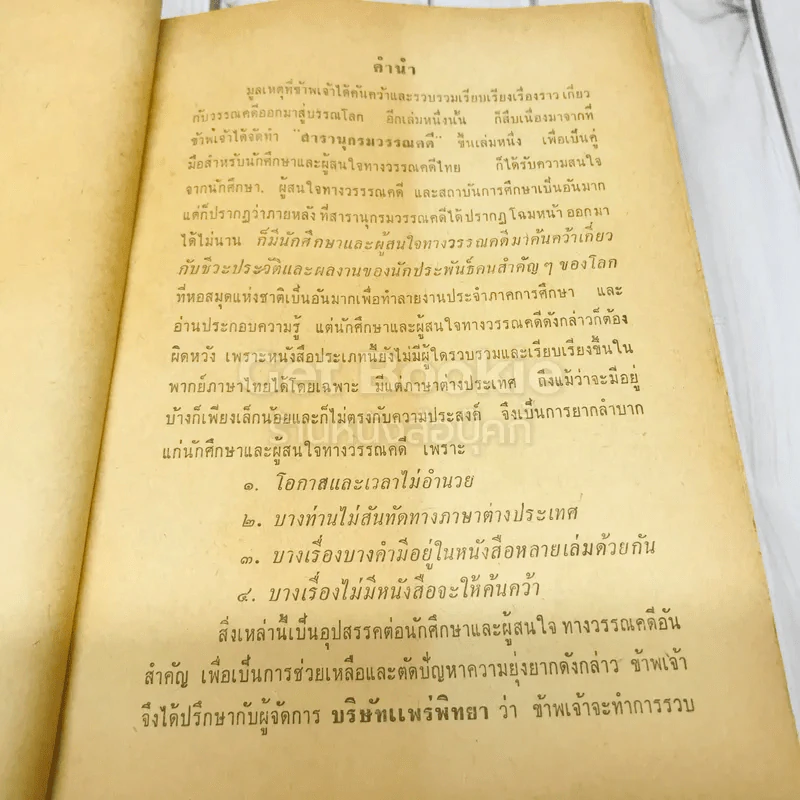 คำนำ
มูลเหตุที่ข้าพเจ้าได้ค้นคว้าและรวบรวมเรียบเรียงเรื่องราว เกี่ยว
กับวรรณคดีออกมาสู่บรรณโลก อีกเล่มหนึ่งนั้น ก็สืบเนื่องมาจากที่
ข้าพเจ้าได้จัดทำ "สารานุกรมวรรณคดี" ขึ้นเล่มหนึ่ง เพื่อเป็นคู่
มือสำหรับนักศึกษาและผู้สนใจทางวรรณคดีไทย ก็ได้รับความสนใจ
จากนักศึกษา, ผู้สนใจทางวรรรณคดี และสถาบันการศึกษาเป็นอันมาก
แต่ก็ปรากฏว่าภายหลัง ที่สารานุกรมวรรณคดีได้ปรากฏโฉมหน้า ออกมา
ได้ไม่นาน ก็มีนักศึกษาและผู้สนใจทางวรรณคดีมาค้นคว้าเกี่ยว
กับชีวะประวัติและผลงานของนักประพันธ์คนสำคัญ ๆ ของโลก
ที่หอสมุดแห่งชาติเป็นอันมากเพื่อทำลายงานประจำภาคการศึกษา และ
อ่านประกอบความรู้ แต่นักศึกษาและผู้สนใจทางวรรณคดีดังกล่าวก็ต้อง
ผิดหวัง เพราะหนังสือประเภทนี้ยังไม่มีผู้ใดรวบรวมและเรียบเรียงขึ้นใน
พากย์ภาษาไทยได้โดยเฉพาะ มีแต่ภาษาต่างประเทศ ถึงแม้ว่าจะมีอยู่
บ้างก็เพียงเล็กน้อยและก็ไม่ตรงกับความประสงค์ จึงเป็นการยากลำบาก
แก่นักศึกษาและผู้สนใจทางวรรณคดี เพราะ
๑. โอกาสและเวลาไม่อำนวย
๒. บางท่านไม่สันทัดทางภาษาต่างประเทศ
๓. บางเรื่องบางคำมีอยู่ในหนังสือหลายเล่มด้วยกัน
๔. บางเรื่องไม่มีหนังสือจะให้ค้นคว้า
สิ่งเหล่านี้เป็นอุปสรรคต่อนักศึกษาและผู้สนใจ ทางวรรณคดีอัน
สำคัญ เพื่อเป็นการช่วยเหลือและตัดปัญหาความยุ่งยากดังกล่าว ข้าพเจ้า
จึงได้ปรึกษากับผู้จัดการ บริษัทแพร่พิทยา ว่า ข้าพเจ้าจะทำการรวบ
Get Bookie
ร้านหนังสือบุ๊คกี้